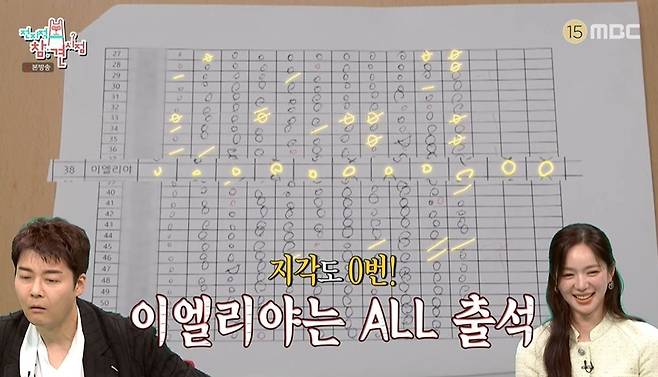 전지적 참견시점
본방송
15 MBC
27
28
29
30
31
32
33
34
35
36
38 이엘리야
40
41
42
43
44
45
46
47
48
49
50
지각도 0번!
이엘리야는 ALL 출석